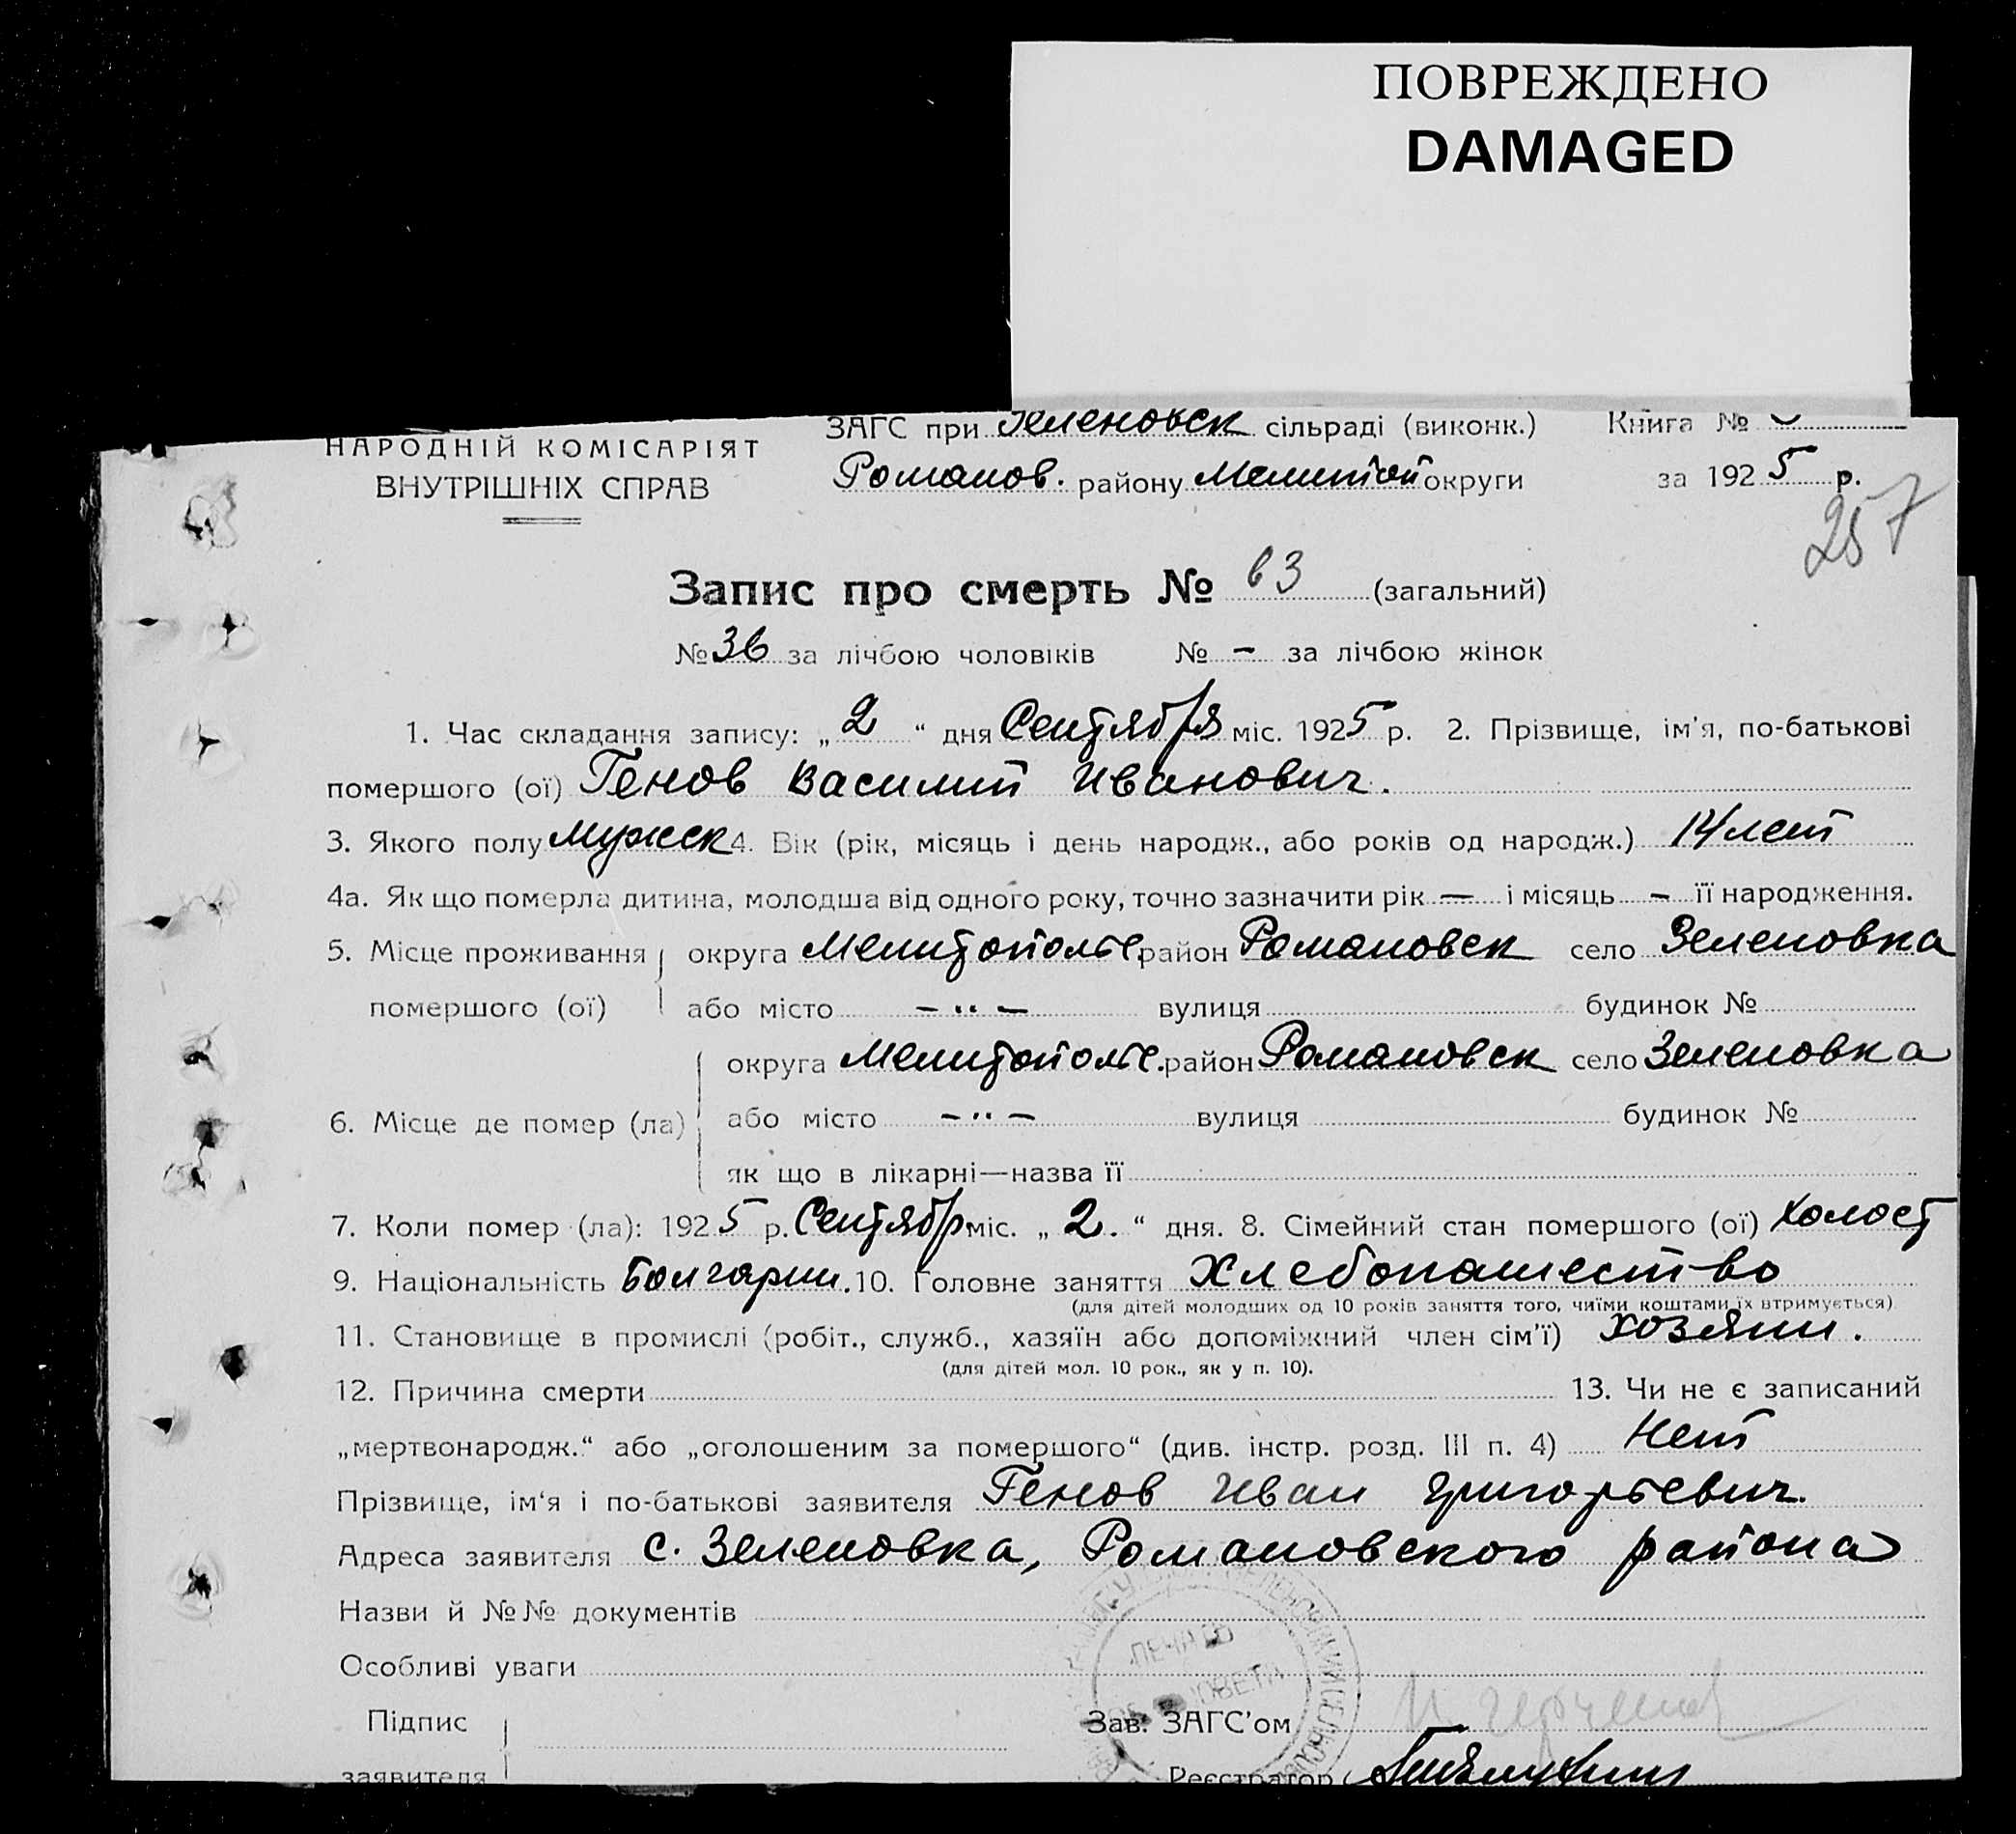 ПОВРЕЖДЕНО
DAMAGED
НАРОДНІЙ КОМІСАРІЯТ
ВНУТРІШНІХ СПРАВ
ЗАГС при Зеленовск сільраді (виконк.)
Романов. району Мелитоп округи
Книга №
за 1925 р.
257
Запис про смерть № 63 (загальний)
№ 36 за лічбою чоловіків № – за лічбою жінок
1. Час складання запису: „2“ дня Сентября міс. 1925 р. 2. Прізвище, ім'я, по-батькові
помершого (ої) Генов Василий Иванович.
3. Якого полу мужск 4. Вік (рік, місяць і день народж., або років од народж.) 14 лет
4а. Як що померла дитина, молодша від одного року, точно зазначити рік — і місяць – її народження.
5. Місце проживання помершого (ої) округа Мелитопольс. район Романовск село Зеленовка
або місто – " – вулиця будинок №
6. Місце де помер (ла) округа Мелитопольс. район Романовск село Зеленовка
або місто – " – вулиця будинок №
як що в лікарні—назва її
7. Коли помер (ла): 1925 р. Сентябр міс. „2.“ дня. 8. Сімейний стан помершого (ої) холост
9. Національність Болгарин. 10. Головне заняття Хлебопашество
(для дітей молодших од 10 років заняття того, чиїми коштами їх втримується)
11. Становище в промислі (робіт., служб., хазяїн або допоміжний член сім'ї) хозяин.
(для дітей мол. 10 рок., як у п. 10).
12. Причина смерти 13. Чи не є записаний
„мертвонародж.“ або „оголошеним за помершого“ (див. інстр. розд. III п. 4) Нет
Прізвище, ім'я і по-батькові заявителя Генов Иван Григорьевич.
Адреса заявителя с. Зеленовка, Романовского района
Назви й №№ документів
Особливі уваги
Підпис
заявителя
Зав. ЗАГС'ом
Реєстратор